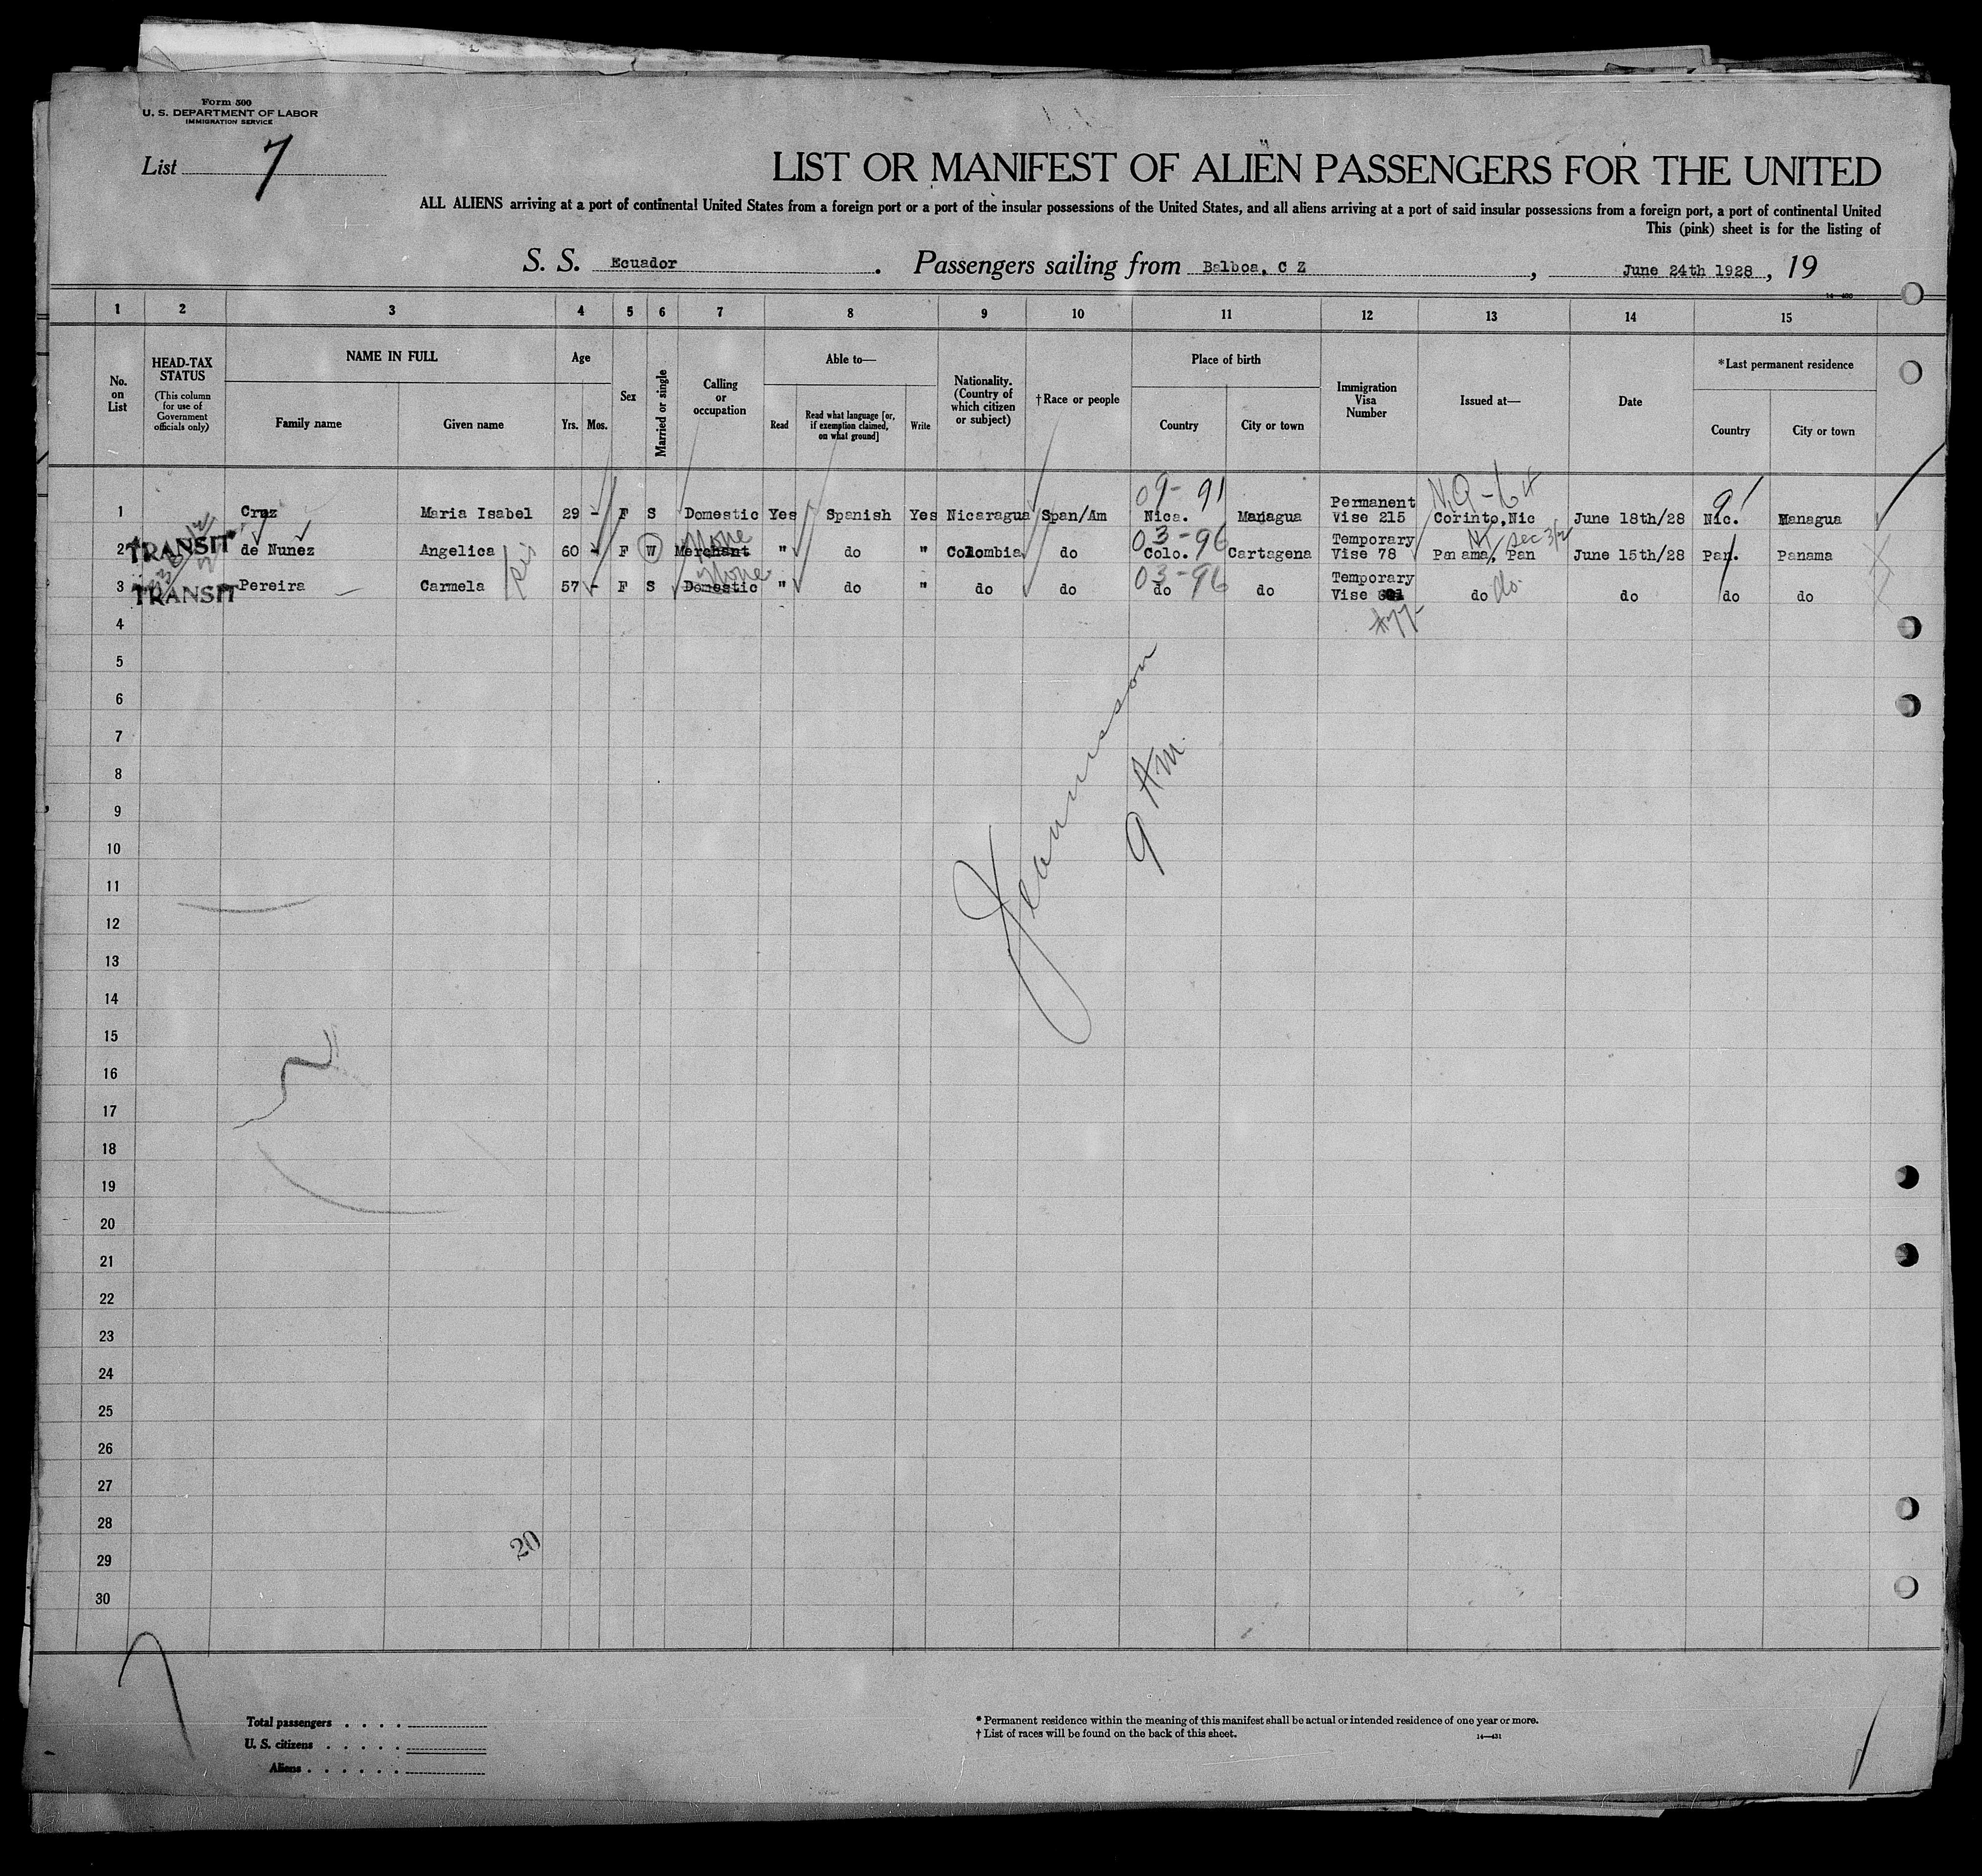 Form 500
U. S. DEPARTMENT OF LABOR
IMMIGRATION SERVICE
List 7
LIST OR MANIFEST OF ALIEN PASSENGERS FOR THE UNITED
ALL ALIENS arriving at a port of continental United States from a foreign port or a port of the insular possessions of the United States, and all aliens arriving at a port of said insular possessions from a foreign port, a port of continental United
This (pink) sheet is for the listing of
S. S. Ecuador. Passengers sailing from Balboa, C Z, June 24th 1928, 19
1 2 3 4 5 6 7 8 9 10 11 12 13 14 15
No. on List
HEAD-TAX STATUS
(This column for use of Government officials only)
NAME IN FULL
Family name
Given name
Age
Yrs. Mos.
Sex
Married or single
Calling or occupation
Able to—
Read
Read what language [or, if exemption claimed, on what ground]
Write
Nationality. (Country of which citizen or subject)
†Race or people
Place of birth
Country
City or town
Immigration Visa Number
Issued at—
Date
*Last permanent residence
Country
City or town
09-91
1 Cruz Maria Isabel 29 - F S Domestic Yes Spanish Yes Nicaragua Span/Am Nica. Managua Permanent Vise 215 Corinto, Nic June 18th/28 Nic. Managua
None 03-96 Sec 3/2
2 TRANSIT de Nunez Angelica sis 60 - F W Merchant " do " Colombia do Colo. Cartagena Temporary Vise 78 Panama, Pan June 15th/28 Pan. Panama
None 03-96
3 TRANSIT Pereira Carmela 57 - F S Domestic " do " do do do do Temporary Vise do do do do do
#77
4
5
6
7
8
9
10
11
12
13
14
15
16
17
18
19
20
21
22
23
24
25
26
27
28
29
30
9 AM.
20
7
Total passengers
U. S. citizens
Aliens
* Permanent residence within the meaning of this manifest shall be actual or intended residence of one year or more.
† List of races will be found on the back of this sheet.
14—431